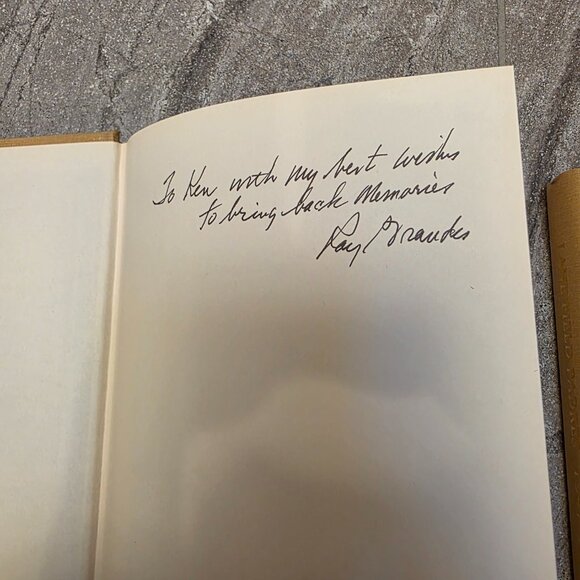 To Ken with my best wishes
to bring back Memories
Ray Brandes